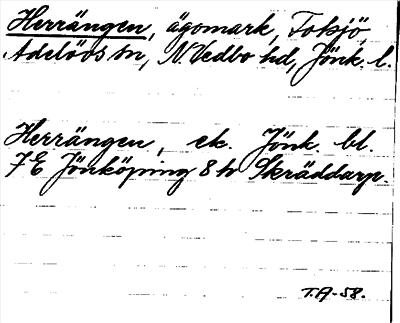 Herrängen, ägomark, Toksjö,
Adelövs sn, N. Vedbo hd, Jönk. l.
Herrängen, ek. Jönk. bl.
7E Jönköping 8 h Skräddarp.
T.A-58.